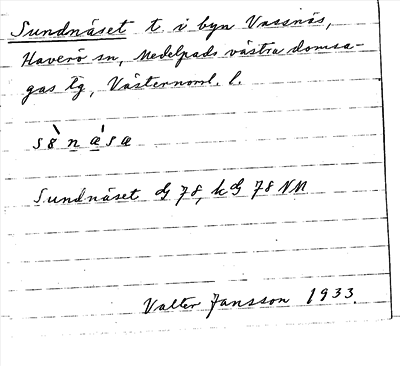 Sundnäset t. i byn Vassnäs,
Haverö sn, Medelpads västra domsa-
gas tg, Västernorrl. l.
Sundnäset G 78, kG 78 NM
Valter Jansson 1933.